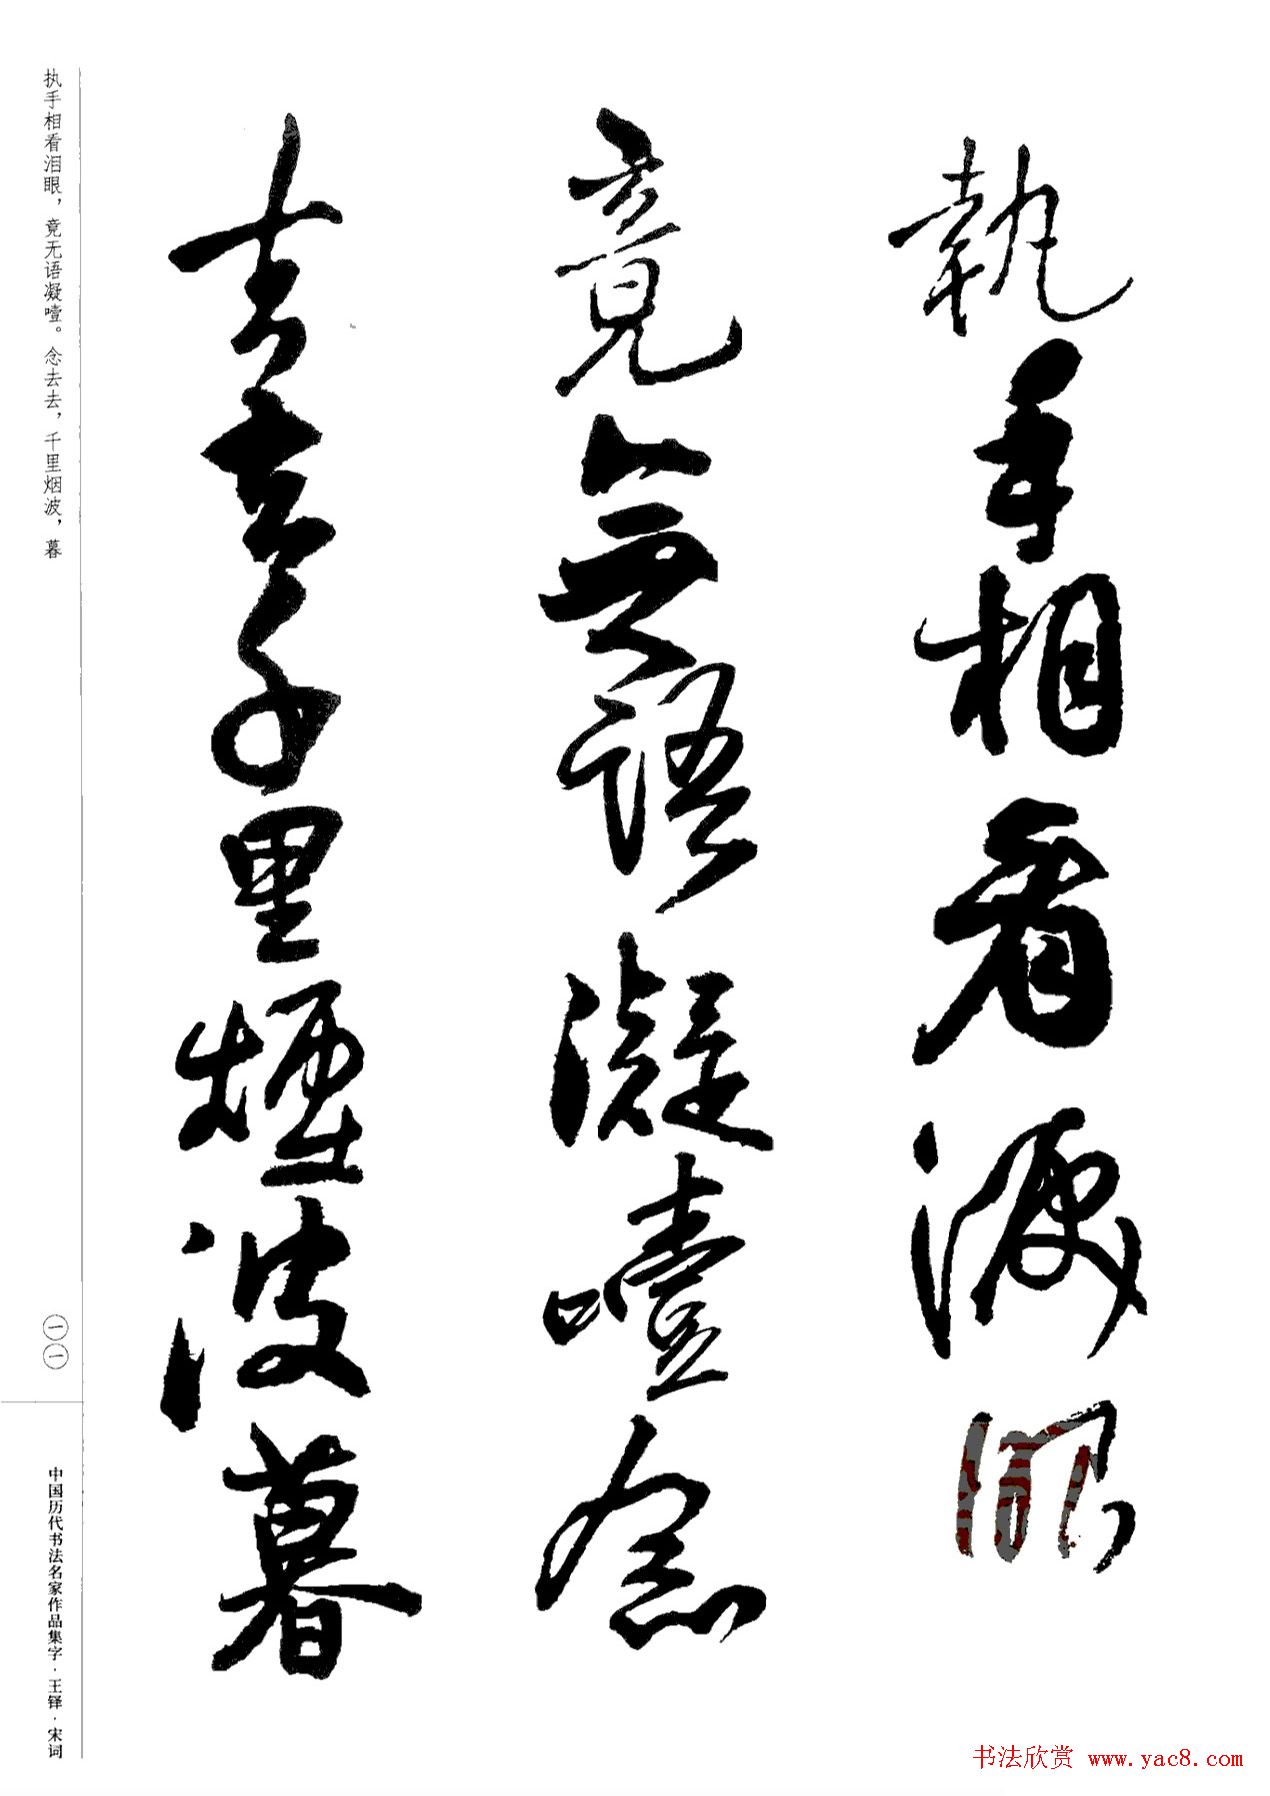 執手相看淚眼
竟無語凝噎念
去去千里煙波暮
执手相看泪眼，竟无语凝噎。念去去，千里烟波，暮
一一
中国历代书法名家作品集字·王铎·宋词
书法欣赏 www.yac8.com